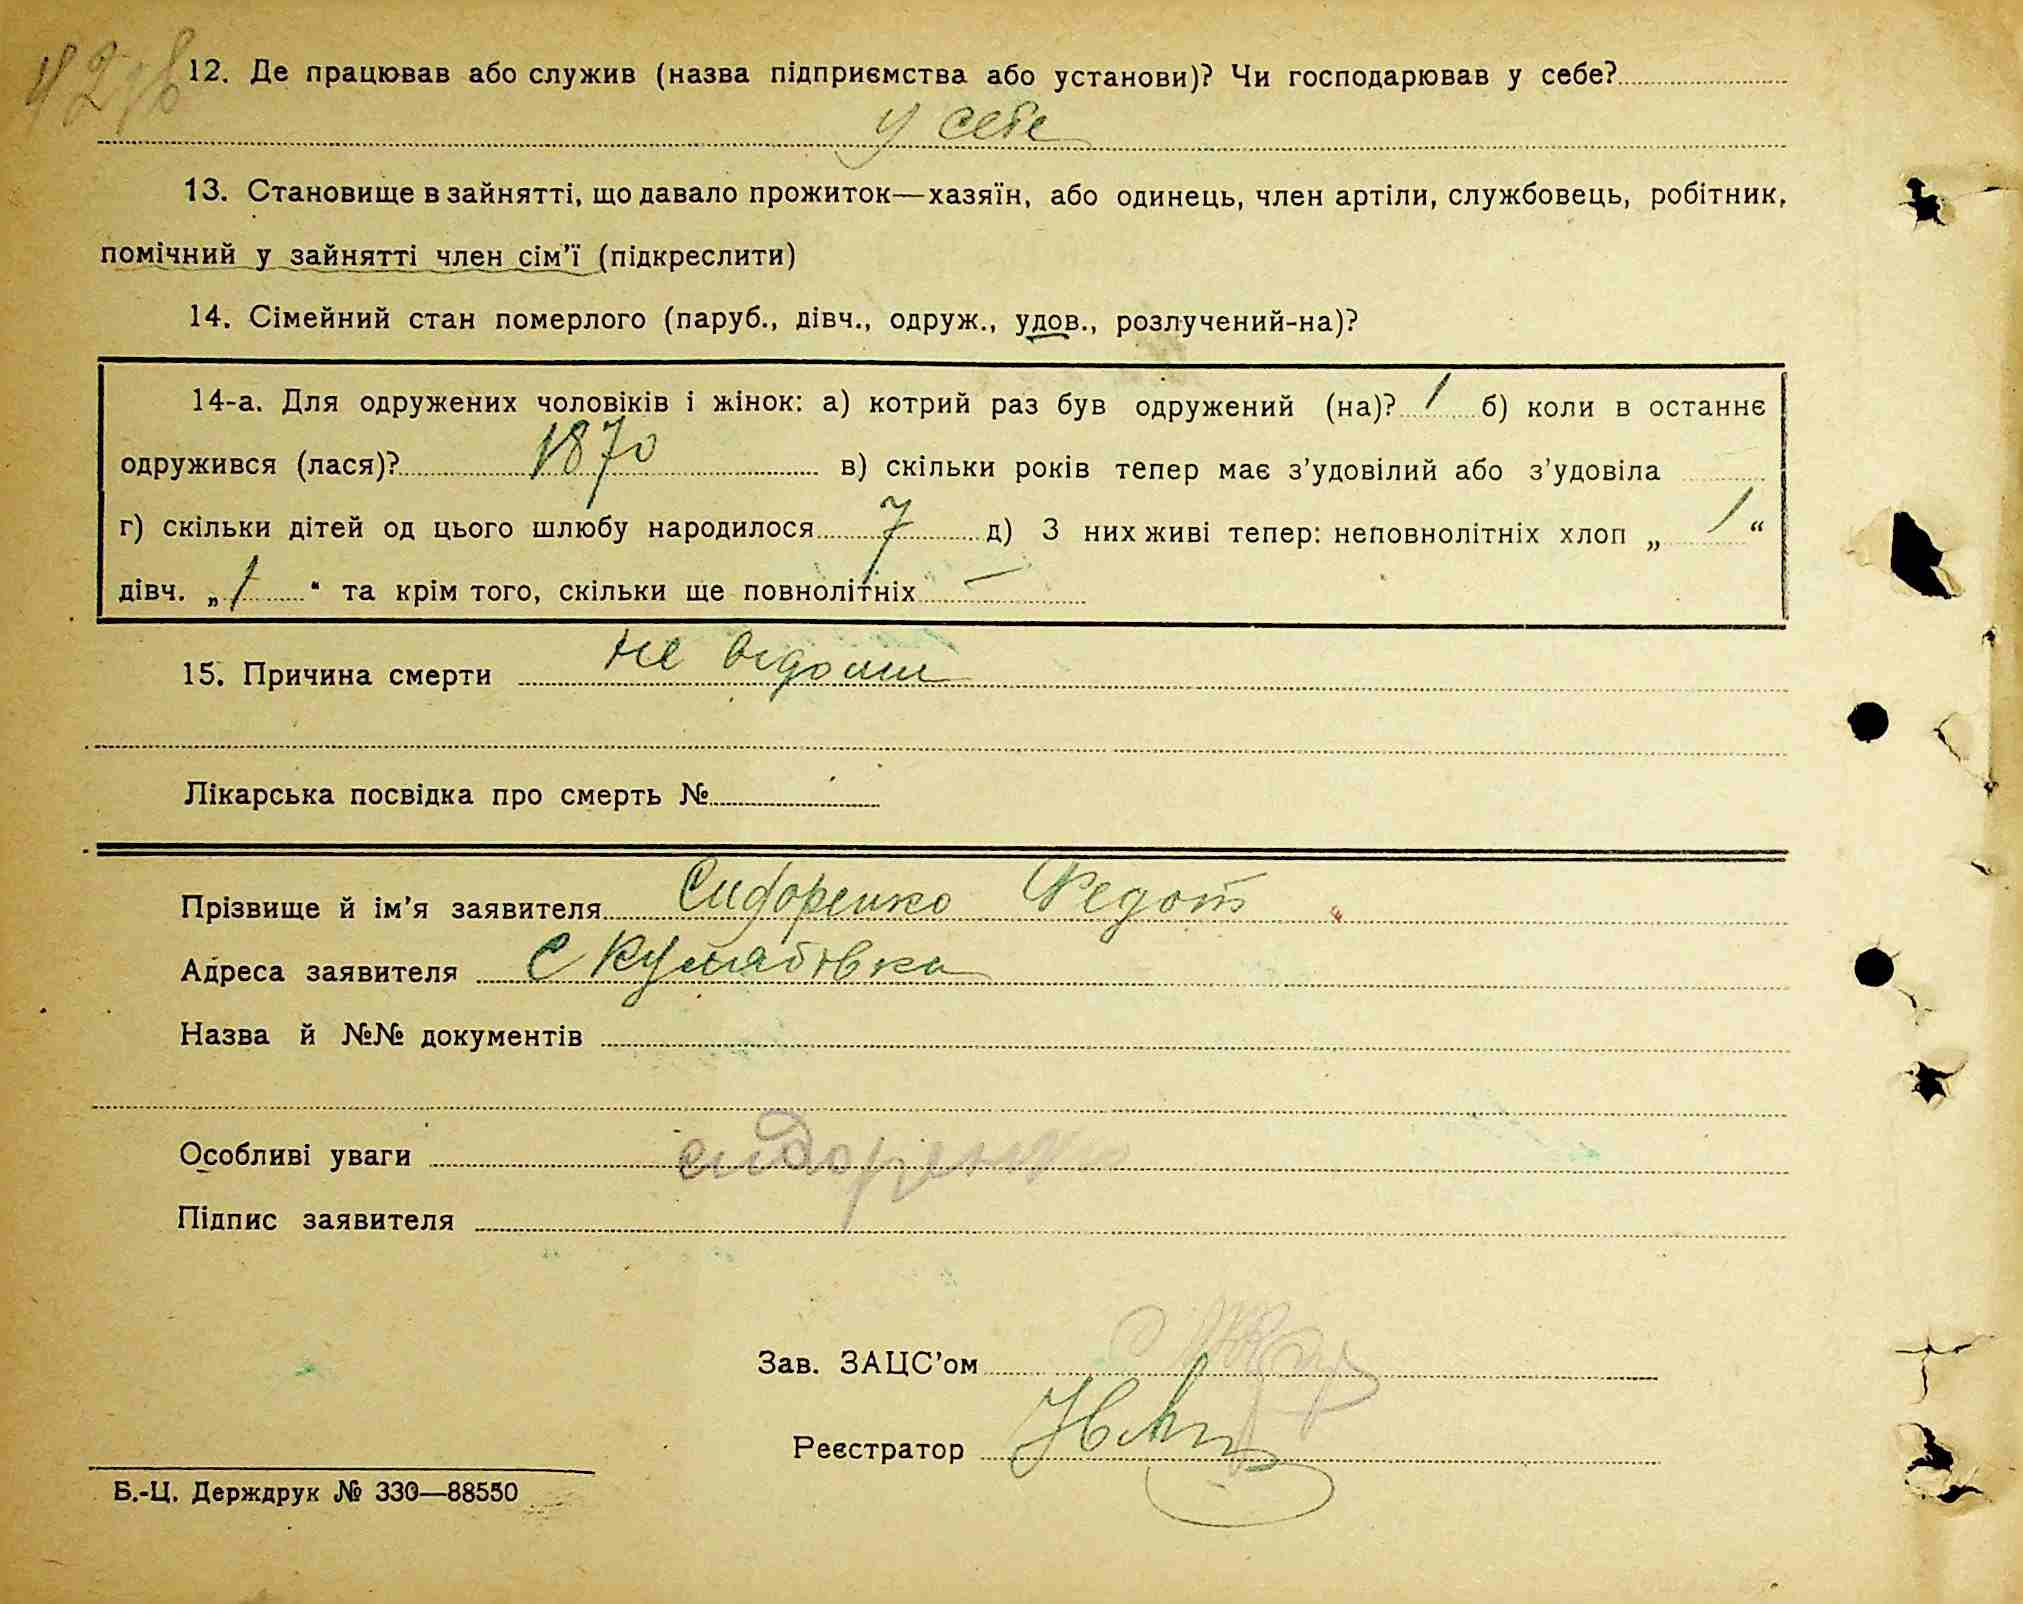 12. Де працював або служив (назва підприємства або установи)? Чи господарював у себе?
у себе
13. Становище в зайнятті, що давало прожиток—хазяїн, або одинець, член артіли, службовець, робітник,
помічний у зайнятті член сім'ї (підкреслити)
14. Сімейний стан померлого (паруб., дівч., одруж., удов., розлучений-на)?
14-а. Для одружених чоловіків і жінок: а) котрий раз був одружений (на)? 1 б) коли в останнє
одружився (лася)? 1870 в) скільки років тепер має з'удовілий або з'удовіла
г) скільки дітей од цього шлюбу народилося 7 д) З них живі тепер: неповнолітніх хлоп „ 1 “
дівч. „ 1 “ та крім того, скільки ще повнолітніх —
15. Причина смерти не відоми
Лікарська посвідка про смерть №
Прізвище й ім'я заявителя Сидоренко Федот
Адреса заявителя с
Назва й №№ документів
Особливі уваги сидоренко
Підпис заявителя
Зав. ЗАЦС'ом
Реєстратор
Б.-Ц. Держдрук № 330—88550